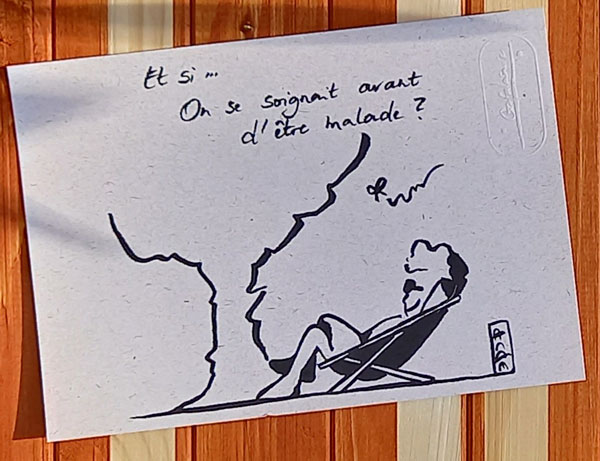 Et si ...
On se soignait avant
d'être malade ?